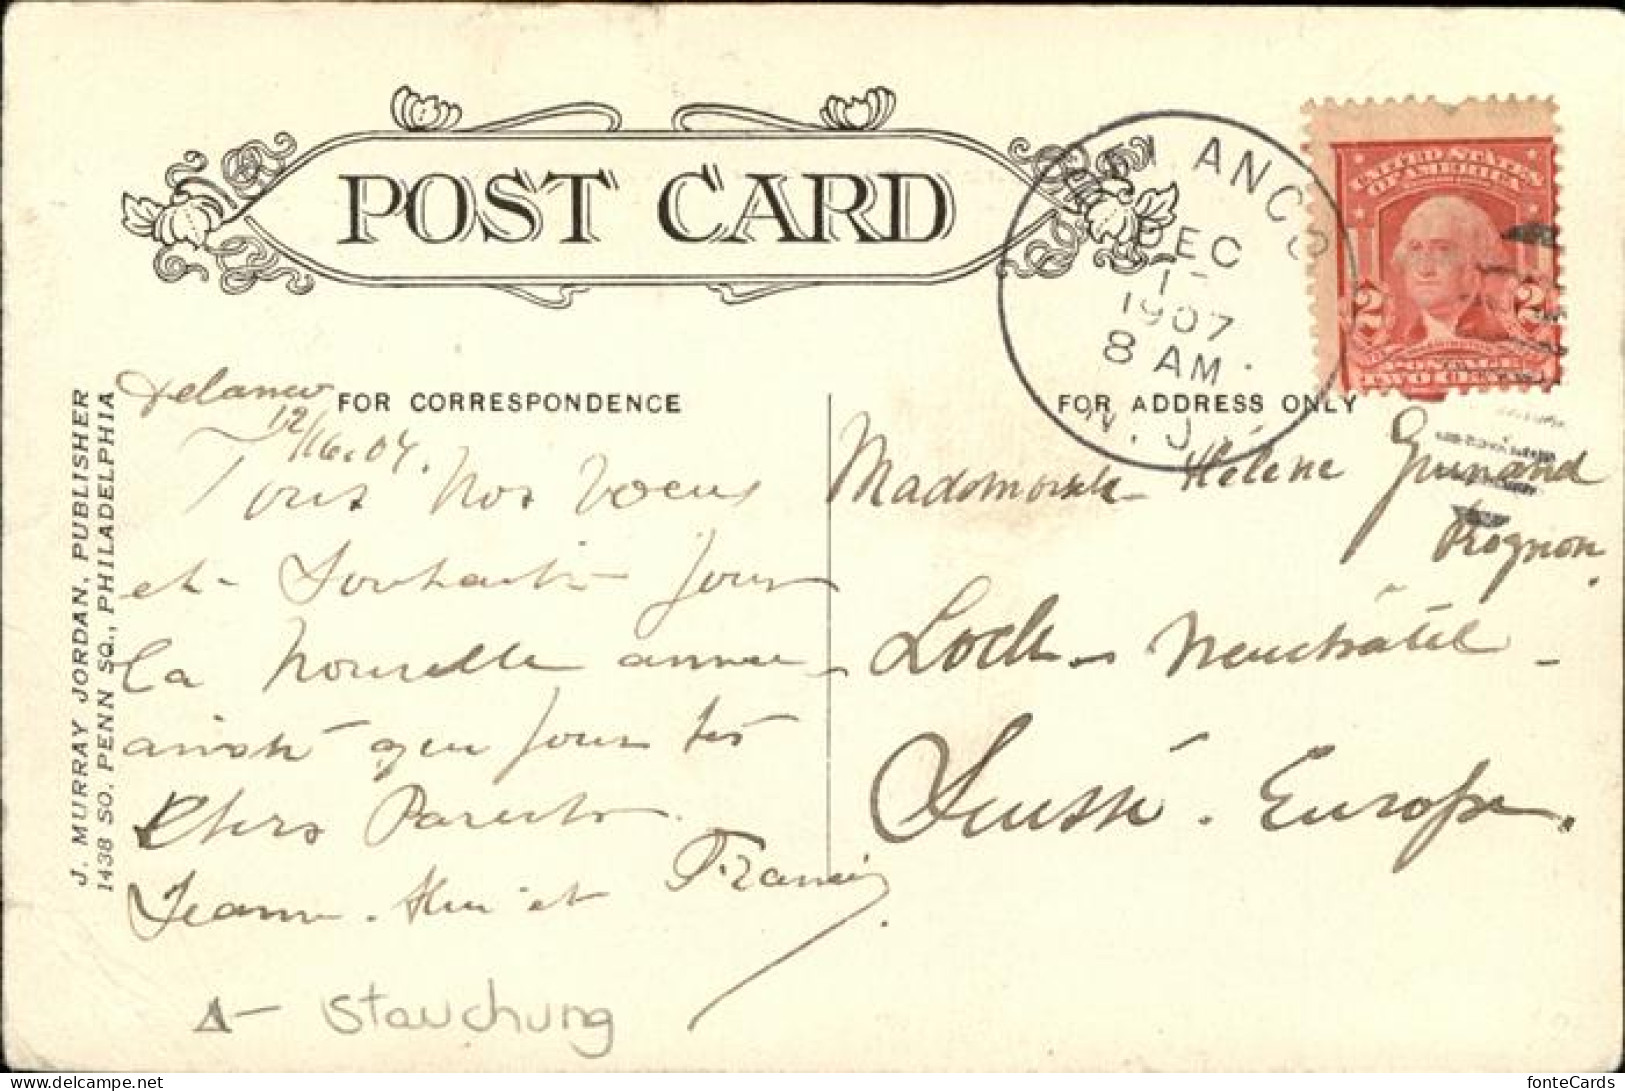 POST CARD
DELANCO
DEC
17
1907
8 AM.
N. J.
UNITED STATES
OF AMERICA
2 2
WASHINGTON
POSTAGE
TWO CENTS
FOR CORRESPONDENCE
FOR ADDRESS ONLY
J. MURRAY JORDAN, PUBLISHER
1438 SO. PENN SQ., PHILADELPHIA
Delanco
12/16.07.
Tous Nos Voeux
et Souhaits pour
la Nouvelle année
ainsi que pour tes
Chers Parents.
Jeanne. et Francis.
Mademoiselle Hélène
Locle Neuchâtel
Suisse. Europe.
A - Stauchung
fonteCards